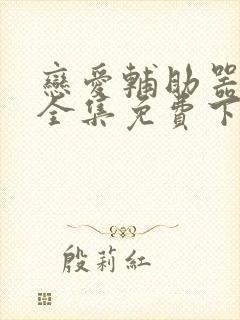 戀愛輔助器
全集免費下
殷莉紅